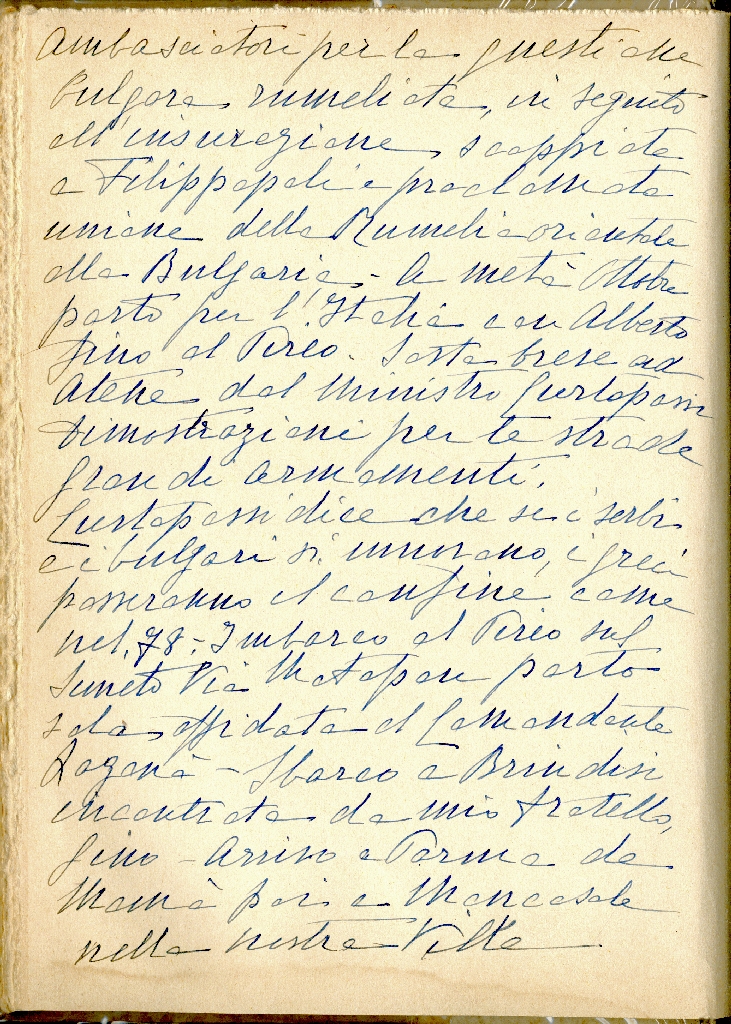 ambasciatori per la questione
Bulgara rumeliota, in seguito
all'insurezione, scoppiata
a Filippopoli e proclamata
unione della Rumelia orientale
alla Bulgaria - a metà Ottobre
parto per l'Italia con Alberto
fino al Pireo. Sosta breve ad
Atene dal Ministro Curtopassi
Dimostrazioni per le strade
grandi armamenti.
Curtopassi dice che se i serbi
e i bulgari si muovono, i greci
passeranno il confine come
nel 78 - Imbarco al Pireo sul
Suneto Via Matapan parto
sola affidata al Comandante
Laganà - Sbarco a Brindisi
incontrata da mio fratello,
Gino - Arrivo a Parma da
Mamà poi a Mancasale
nella nostra Villa